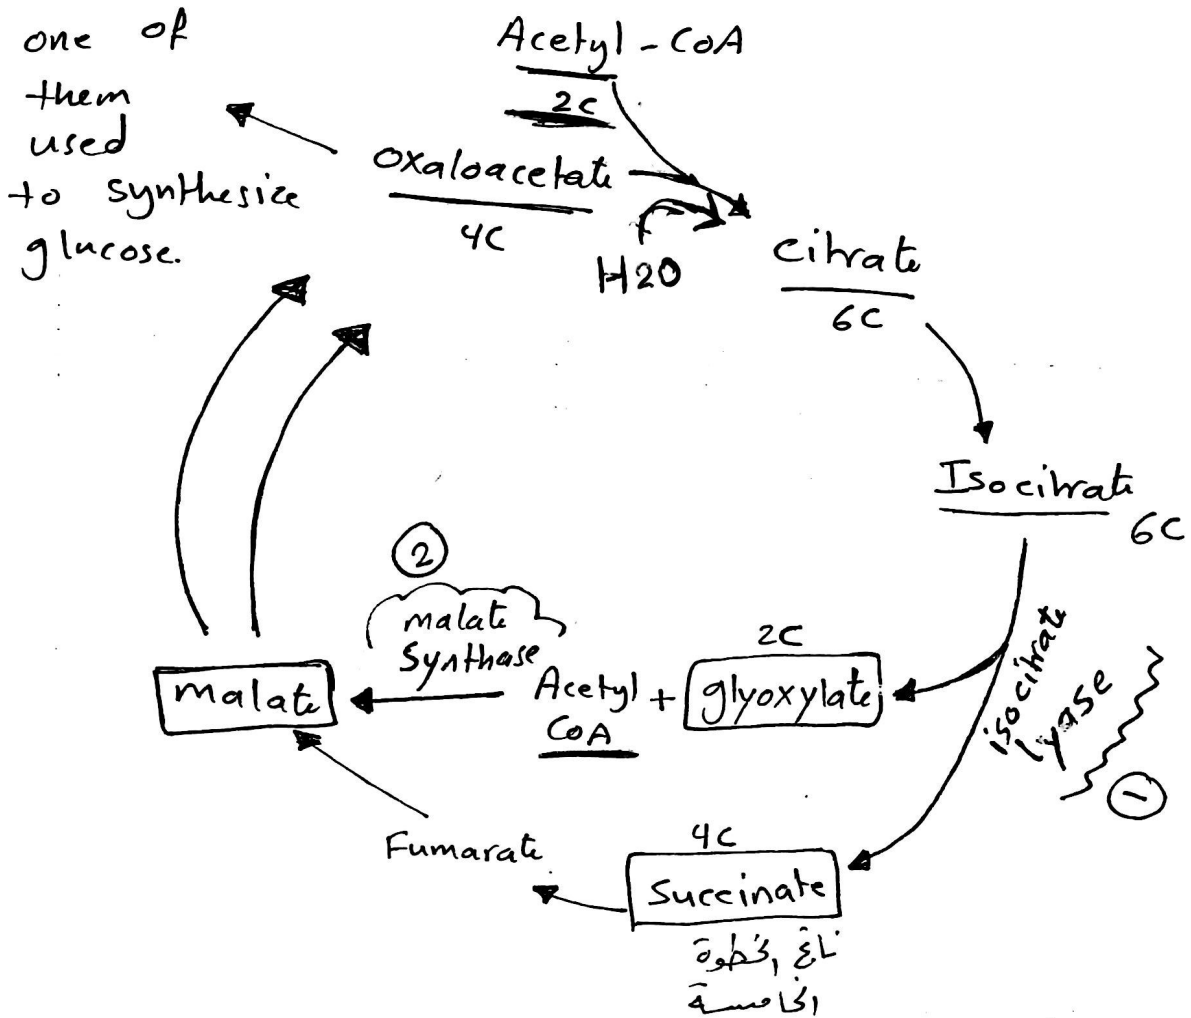 one of
them
used
to synthesize
glucose.
Acetyl-CoA
2C
oxaloacetate
4C
H2O
Citrate
6C
Isocitrate
6C
isocitrate
lyase
1
2C
glyoxylate
+
Acetyl
CoA
2
malate
Synthase
malate
4C
Succinate
الخطوة
الخامسة
Fumarate